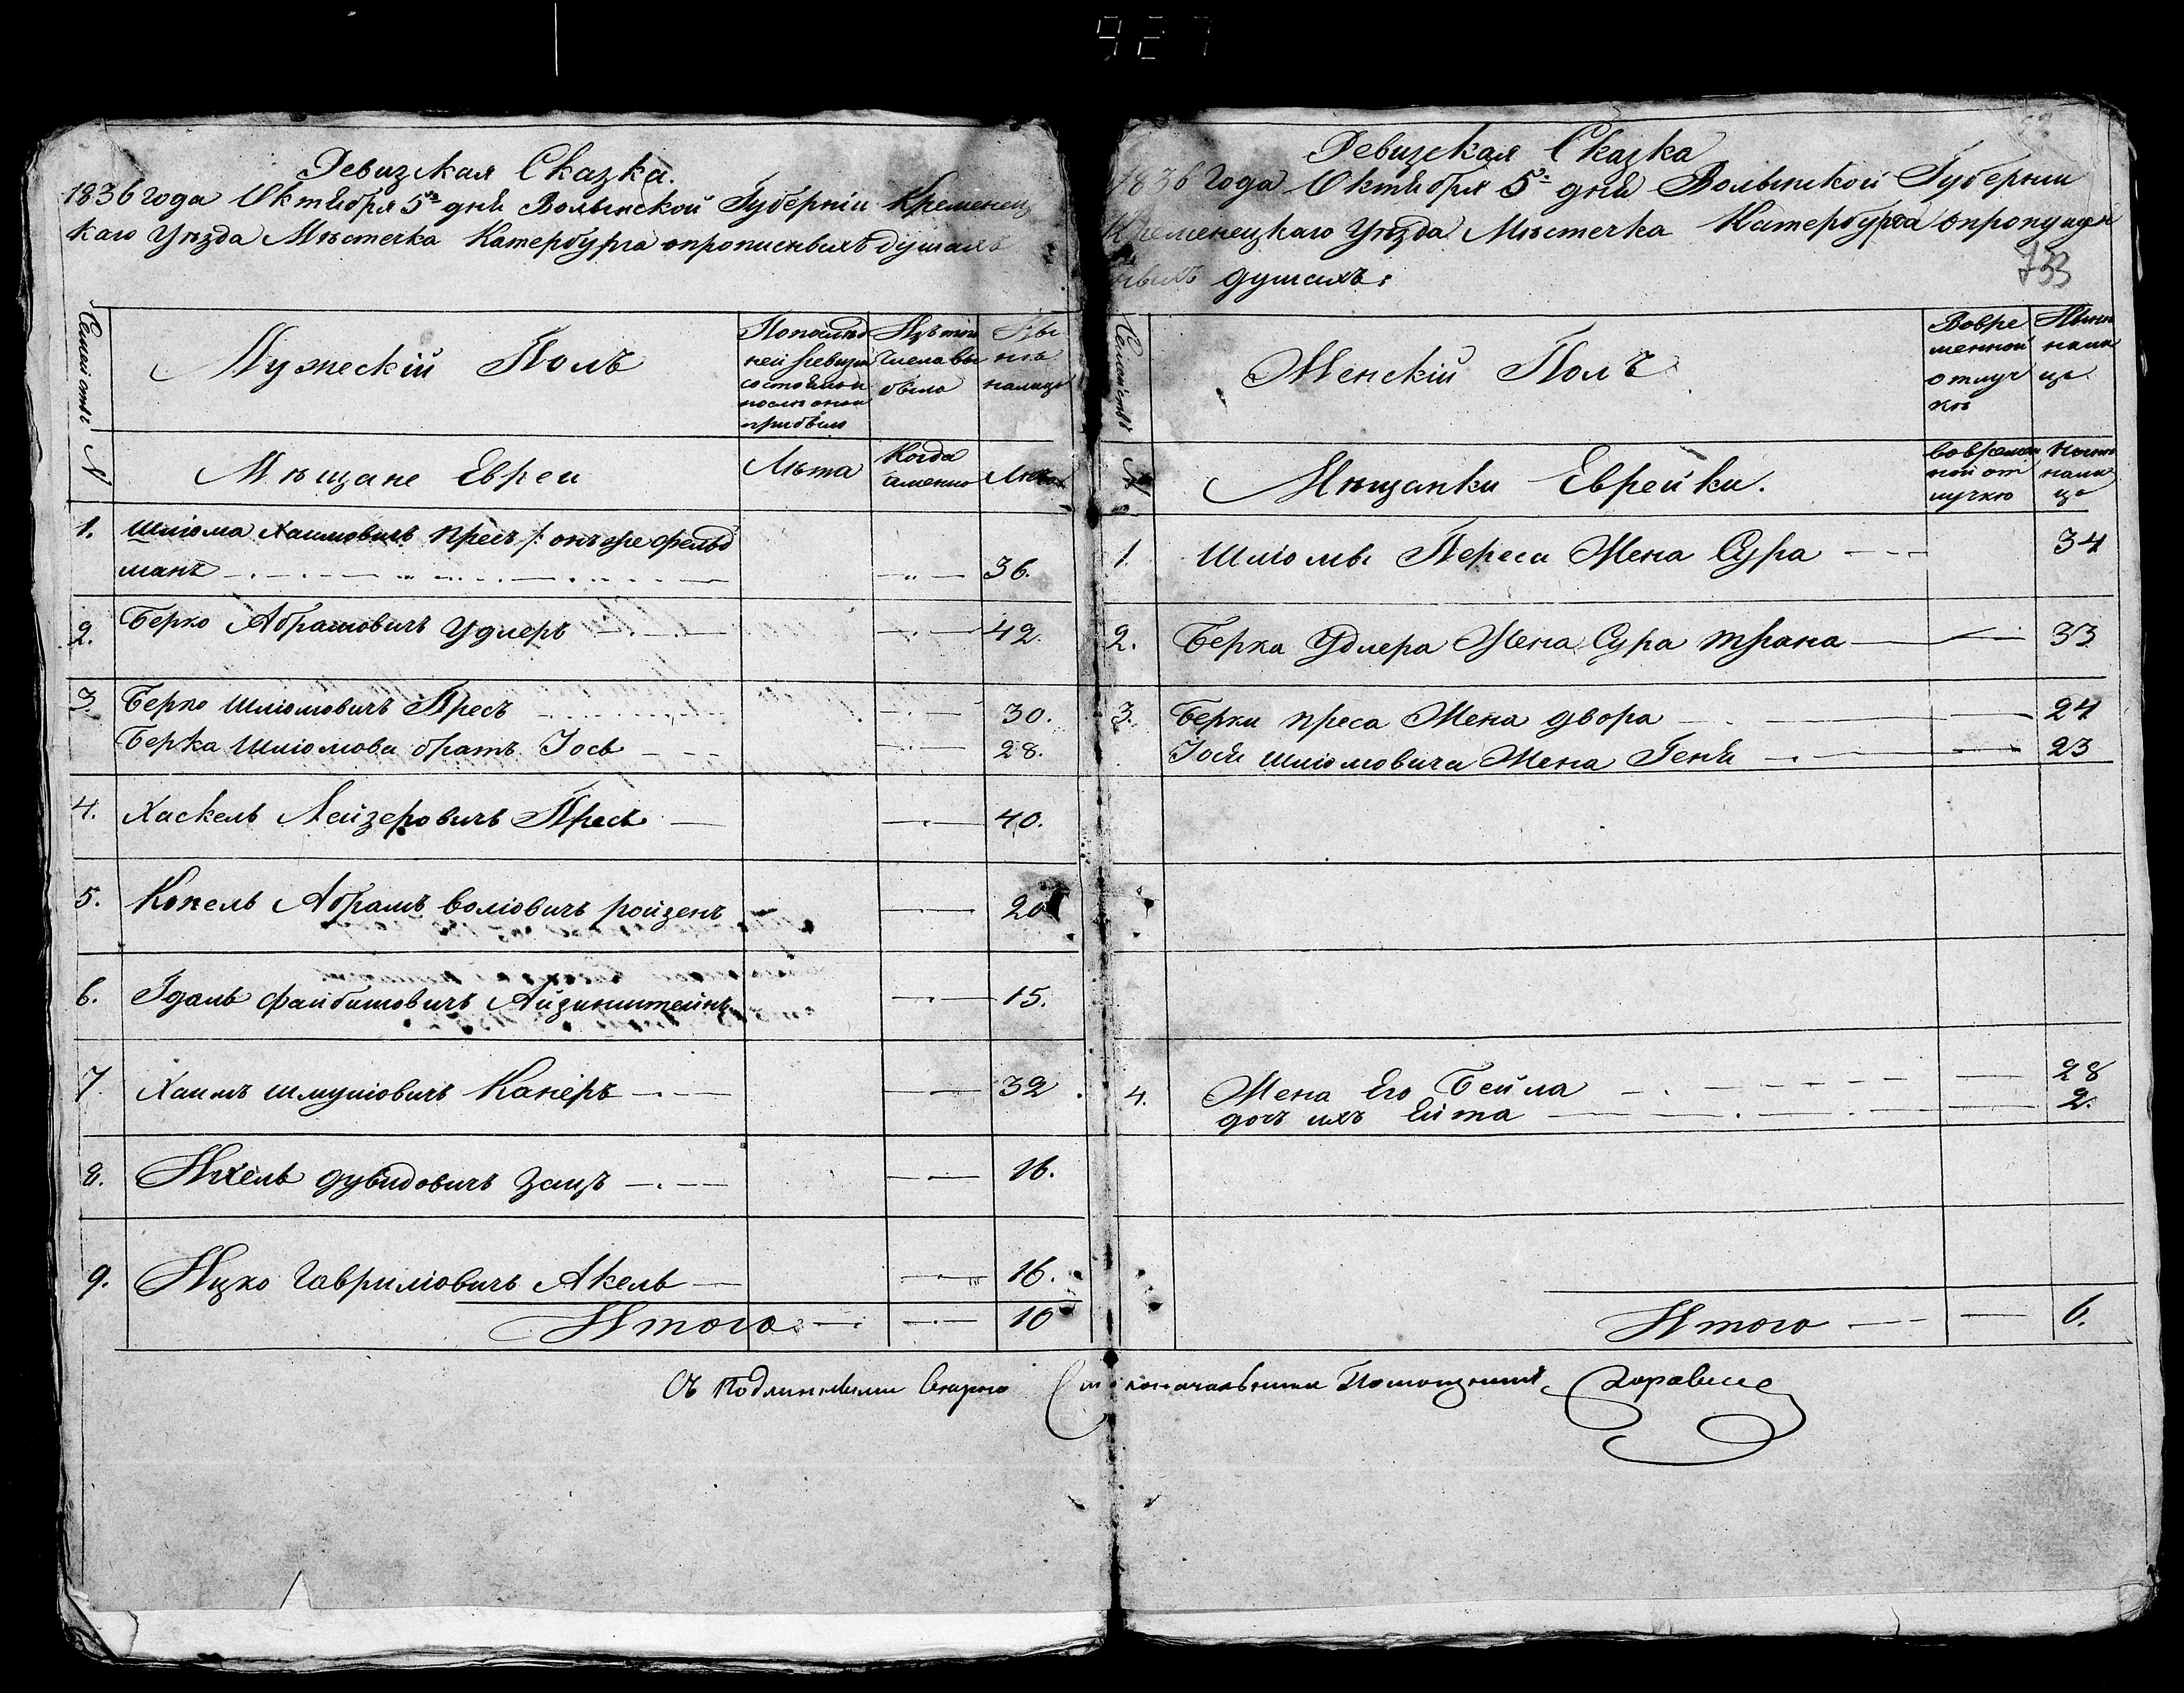 927
Ревизская Сказка.
1836 года Октября 5го дня Волынской Губерніи Кременец
каго Уезда Мѣстечка Катербурга опрописныхъ душахъ
Семейства N
Мужескій Полъ
Попослѣд
ней ревизіи
состояло и
после оной
прибыло
Изътого
числа вы
было
Ны
нѣ
налицо
Мѣщане Евреи
Лѣта
Когда
именно
Лѣта
1. Шліома Хаимовичъ Пресъ /: онъ же фельд
манъ 36.
2. Берко Абрамовичъ Удлеръ 42.
3. Берко Шліомовичъ Пресъ 30.
Берка Шліомова братъ Іось 28.
4. Хаскель Лейзеровичъ Пресъ 40.
5. Копель Абрамъ Волювичъ ройзенъ 20
6. Ідаль Файбишовичъ Айзинштейнъ 15.
7. Хаимъ Шмуліовичъ Канеръ 32
8. Ихель Дувидовичъ Зацъ 16.
9. Ицко Гавриліовичъ Акель 16.
Итого 10
Ревизская Сказка
1836 года Октября 5го дня Волынской Губерніи
Кременецкаго Уезда Мѣстечка Катербурга опропущен
ныхъ душахъ:
733
Семейства N
Женскій Полъ
Вовре
менной
отлуч
кѣ
Нынѣ
нали
цо
Мѣщанки Еврейки.
вовремен
ной от
лучкѣ
Нынѣ
нали
цо
1. Шліомы Переса Жена Сура 34
2. Берка Удлера Жена Сура Трана 33
3. Берки преса Жена двора 24
Іося Шліомовича Жена Геня 23
4. Жена Его Бейла 28
дочь ихъ Ейта 2.
Итого 6.
Съ Подлинными Столоначальника Помощникъ